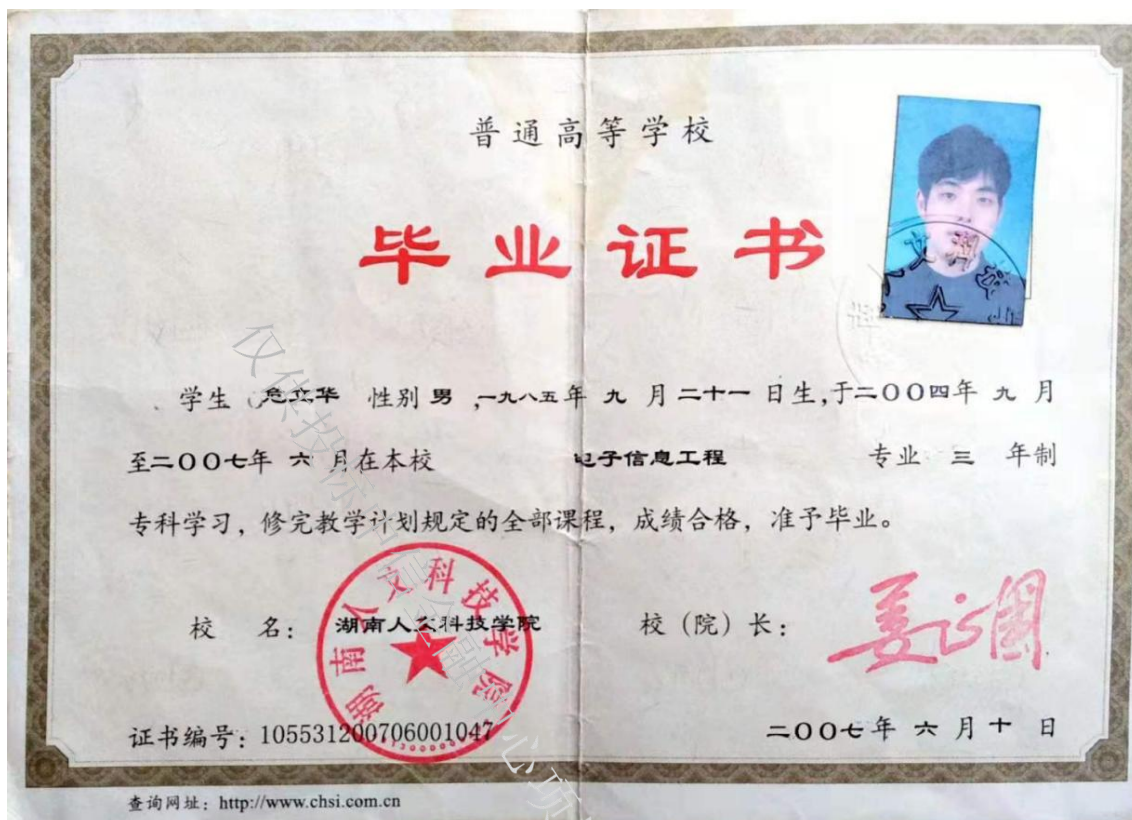 普通高等学校
毕业证书
学生 危立华 性别 男 ,一九八五年 九 月 二十一 日生,于二〇〇四年 九 月
至二〇〇七年 六 月在本校 电子信息工程 专业 三 年制
专科学习,修完教学计划规定的全部课程,成绩合格,准予毕业。
校 名: 湖南人文科技学院
校(院)长:
湖南人文科技学院
证书编号:105531200706001047
二〇〇七年 六 月 十 日
查询网址:http://www.chsi.com.cn